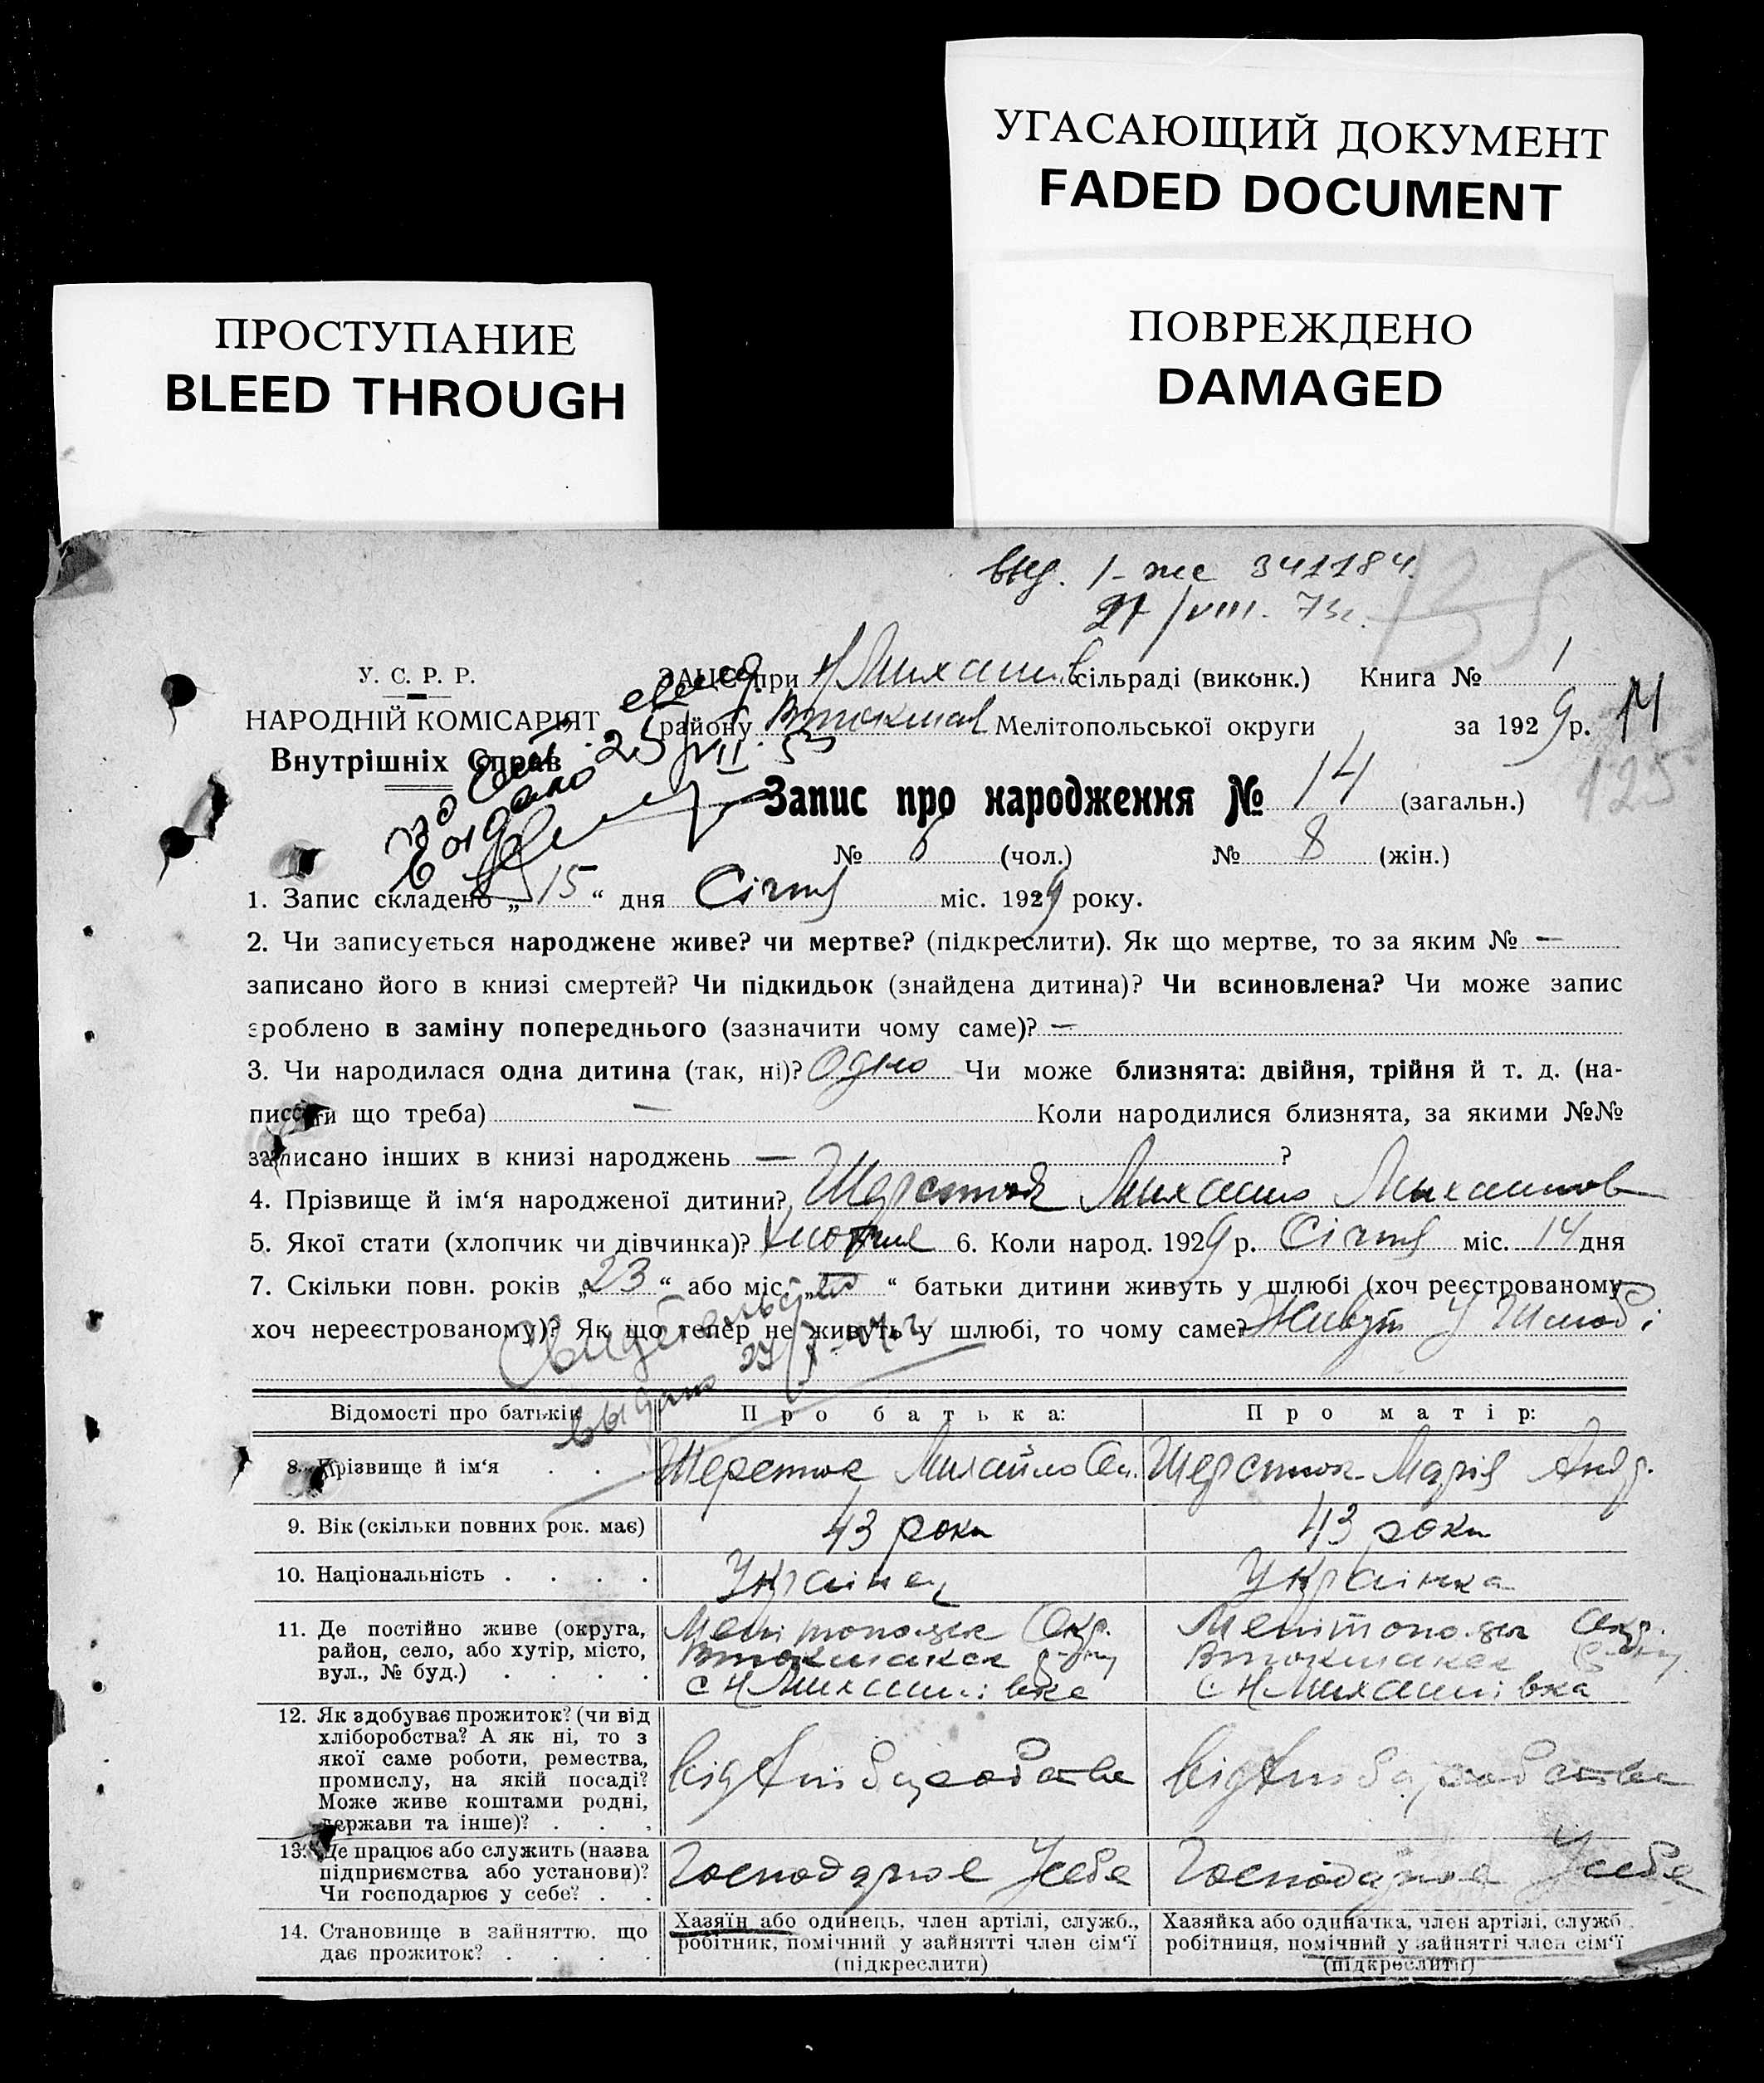 УГАСАЮЩИЙ ДОКУМЕНТ
FADED DOCUMENT
ПРОСТУПАНИЕ
BLEED THROUGH
ПОВРЕЖДЕНО
DAMAGED
выд. 1-же 341184.
27/VIII. 73г.
135
У. С. Р. Р.
НАРОДНІЙ КОМІСАРІЯТ
Внутрішніх Справ
ЗАЦС при Н Михайлів сільраді (виконк.) Книга № 1
району Мелітопольської округи за 1929 р. 14
125
Запис про народження № 14 (загальн.)
№ 6 (чол.) № 8 (жін.)
1. Запис складено „15“ дня Січня міс. 1929 року.
2. Чи записується народжене живе? чи мертве? (підкреслити). Як що мертве, то за яким № —
записано його в книзі смертей? Чи підкидьок (знайдена дитина)? Чи всиновлена? Чи може запис
зроблено в заміну попереднього (зазначити чому саме)? —
3. Чи народилася одна дитина (так, ні)? Одно Чи може близнята: двійня, трійня й т. д. (на-
писати що треба) — Коли народилися близнята, за якими №№
записано інших в книзі народжень — ?
4. Прізвище й ім‘я народженої дитини? Шерстюк Михайло Михайлов
5. Якої стати (хлопчик чи дівчинка)? 6. Коли народ. 1929 р. Січня міс. 14 дня
7. Скільки повн. років „23“ або міс. „ “ батьки дитини живуть у шлюбі (хоч реєстрованому,
хоч нереєстрованому)? Як що тепер не живуть у шлюбі, то чому саме? Живут У Шлюбі
Відомості про батьків Про батька: Про матір:
8. Прізвище й ім‘я Шерстюк Михайло Шерстюк Марія Андр.
9. Вік (скільки повних рок. має) 43 роки 43 роки
10. Національність Українец Українка
11. Де постійно живе (округа,
район, село, або хутір, місто,
вул., № буд.)
Мелітопольск Окр.
Втокмакск
с Н Михайлівка
Мелітопольск Окр.
Втокмакск
с Н Михайлівка
12. Як здобуває прожиток? (чи від
хліборобства? А як ні, то з
якої саме роботи, ремества,
промислу, на якій посаді?
Може живе коштами родні,
держави та інше)?
від хліборобства
від хліборобства
13. Де працює або служить (назва
підприємства або установи)?
Чи господарює у себе?
Господарює Усебе
Господарює Усебе
14. Становище в зайняттю, що
дає прожиток?
Хазяїн або одинець, член артілі, служб.,
робітник, помічний у зайнятті член сім‘ї
(підкреслити)
Хазяйка або одиначка, член артілі, служб.,
робітниця, помічний у зайнятті член сім‘ї
(підкреслити)